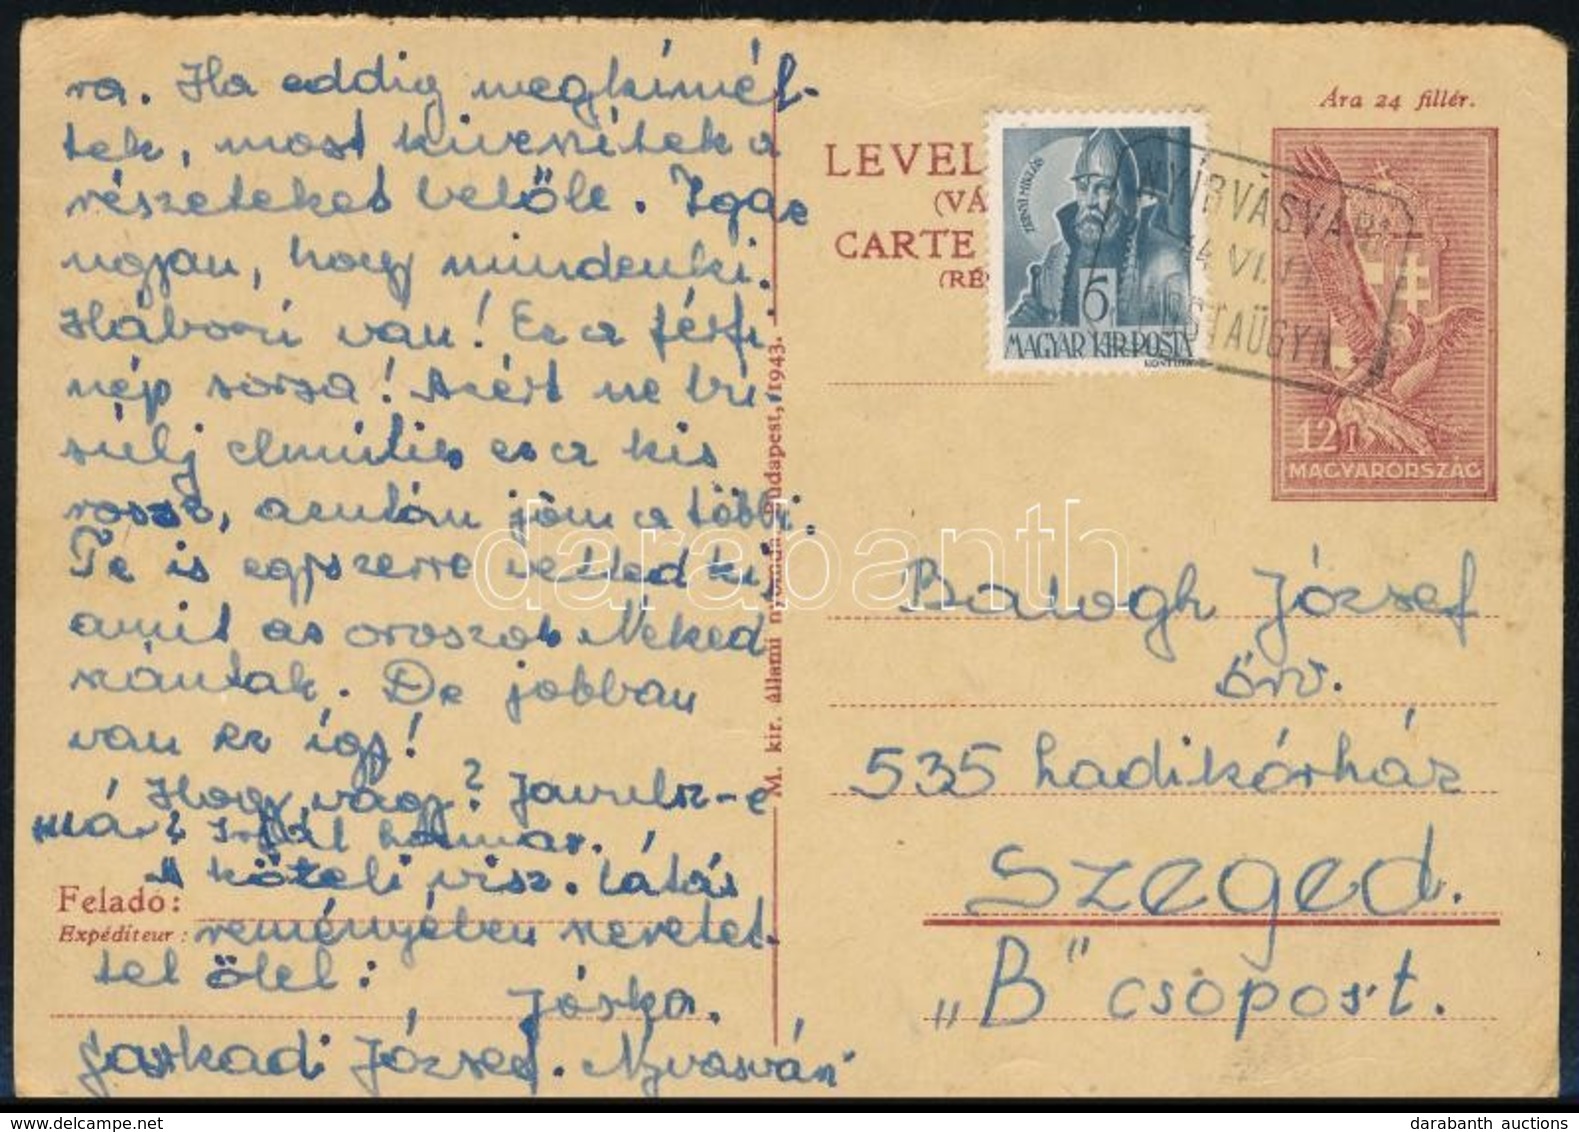 ra. Ha eddig megkímél-
tek, most kiveszitek a
részeteket belőle. Igaz
ugyan, hogy mindenki.
Háború van! Ez a férfi
nép sorsa! Azért ne bú-
sulj elmúlik ez a kis
rossz, azután jön a többi.
Te is egyszerre vetted ki,
amit az oroszok Neked
szántak. De jobban
van ez így!
Hogy vagy? Javulsz-e
már?
A köteli visz. látás
reményében szeretet-
tel ölel:
Jóska.
Gaskadi József. Nyvasvári
Feladó:
Expéditeur:
M. kir. állami nyomda, Budapest, 1943.
Ára 24 fillér.
LEVEL
(VÁ
CARTE
(RÉ
ZRINYI MIKLÓS
6
MAGYAR KIR. POSTA
NYÍRVASVÁRI
44 VI.
POSTAÜGYN.
12 f.
MAGYARORSZÁG
Balogh József
örv.
535 hadikórház
Szeged.
„B" csoport.
darabanth
darabanth auctions
www.darabanth.com